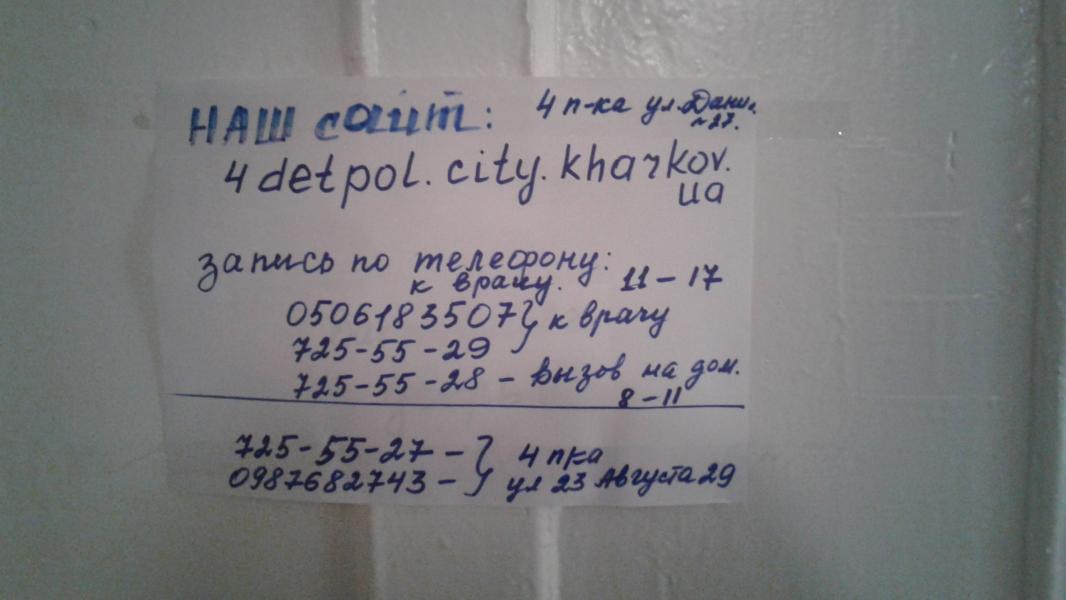 НАШ сайт: 4 п-ка ул. Дани.
№27.
4detpol.city.kharkov.
ua
запись по телефону:
к врачу. 11-17
0506183507 } к врачу
725-55-29
725-55-28 - вызов на дом.
8-11
725-55-27 - } 4 пка
0987682743 - ул 23 Августа 29